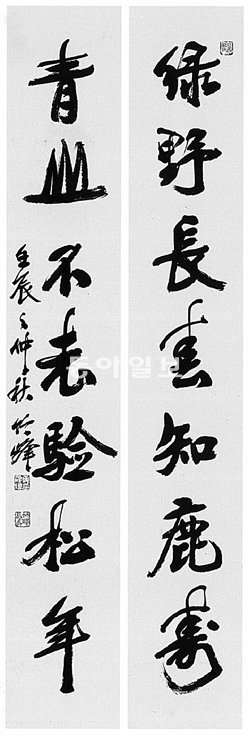 綠野長春知鹿壽
青山不老驗松年
壬辰之仲秋 竹峰
동아일보